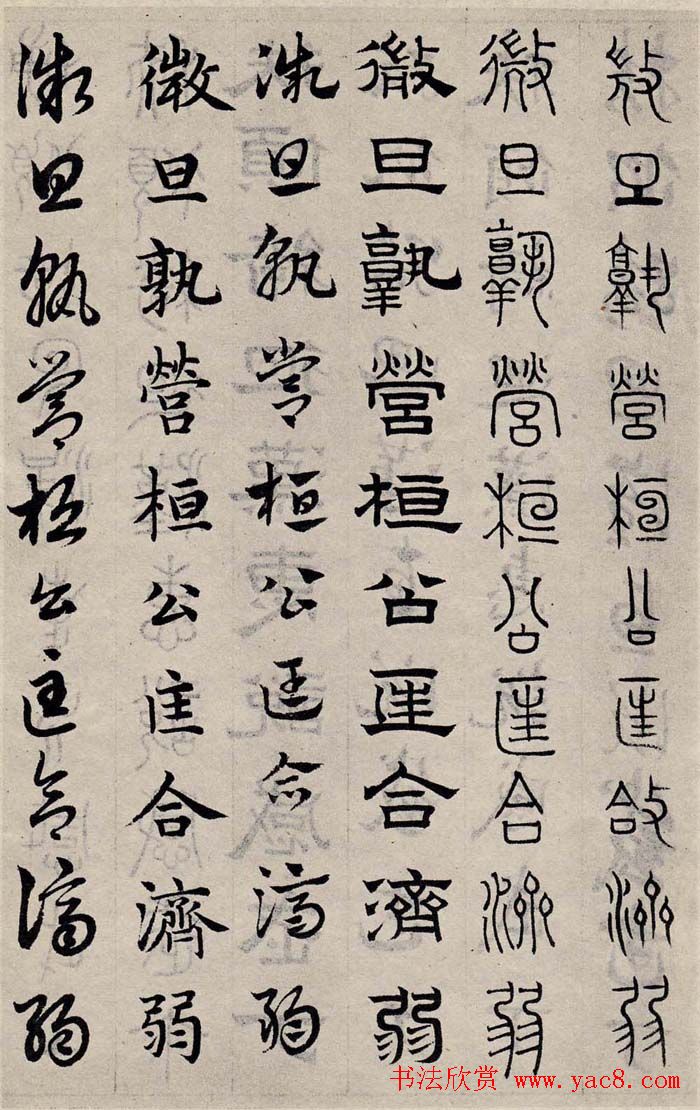 微旦孰營桓公匡合濟弱
微旦孰營桓公匡合濟弱
微旦孰營桓公匡合濟弱
微旦孰營桓公匡合濟弱
微旦孰營桓公匡合濟弱
微旦孰營桓公匡合濟弱
书法欣赏 www.yac8.com